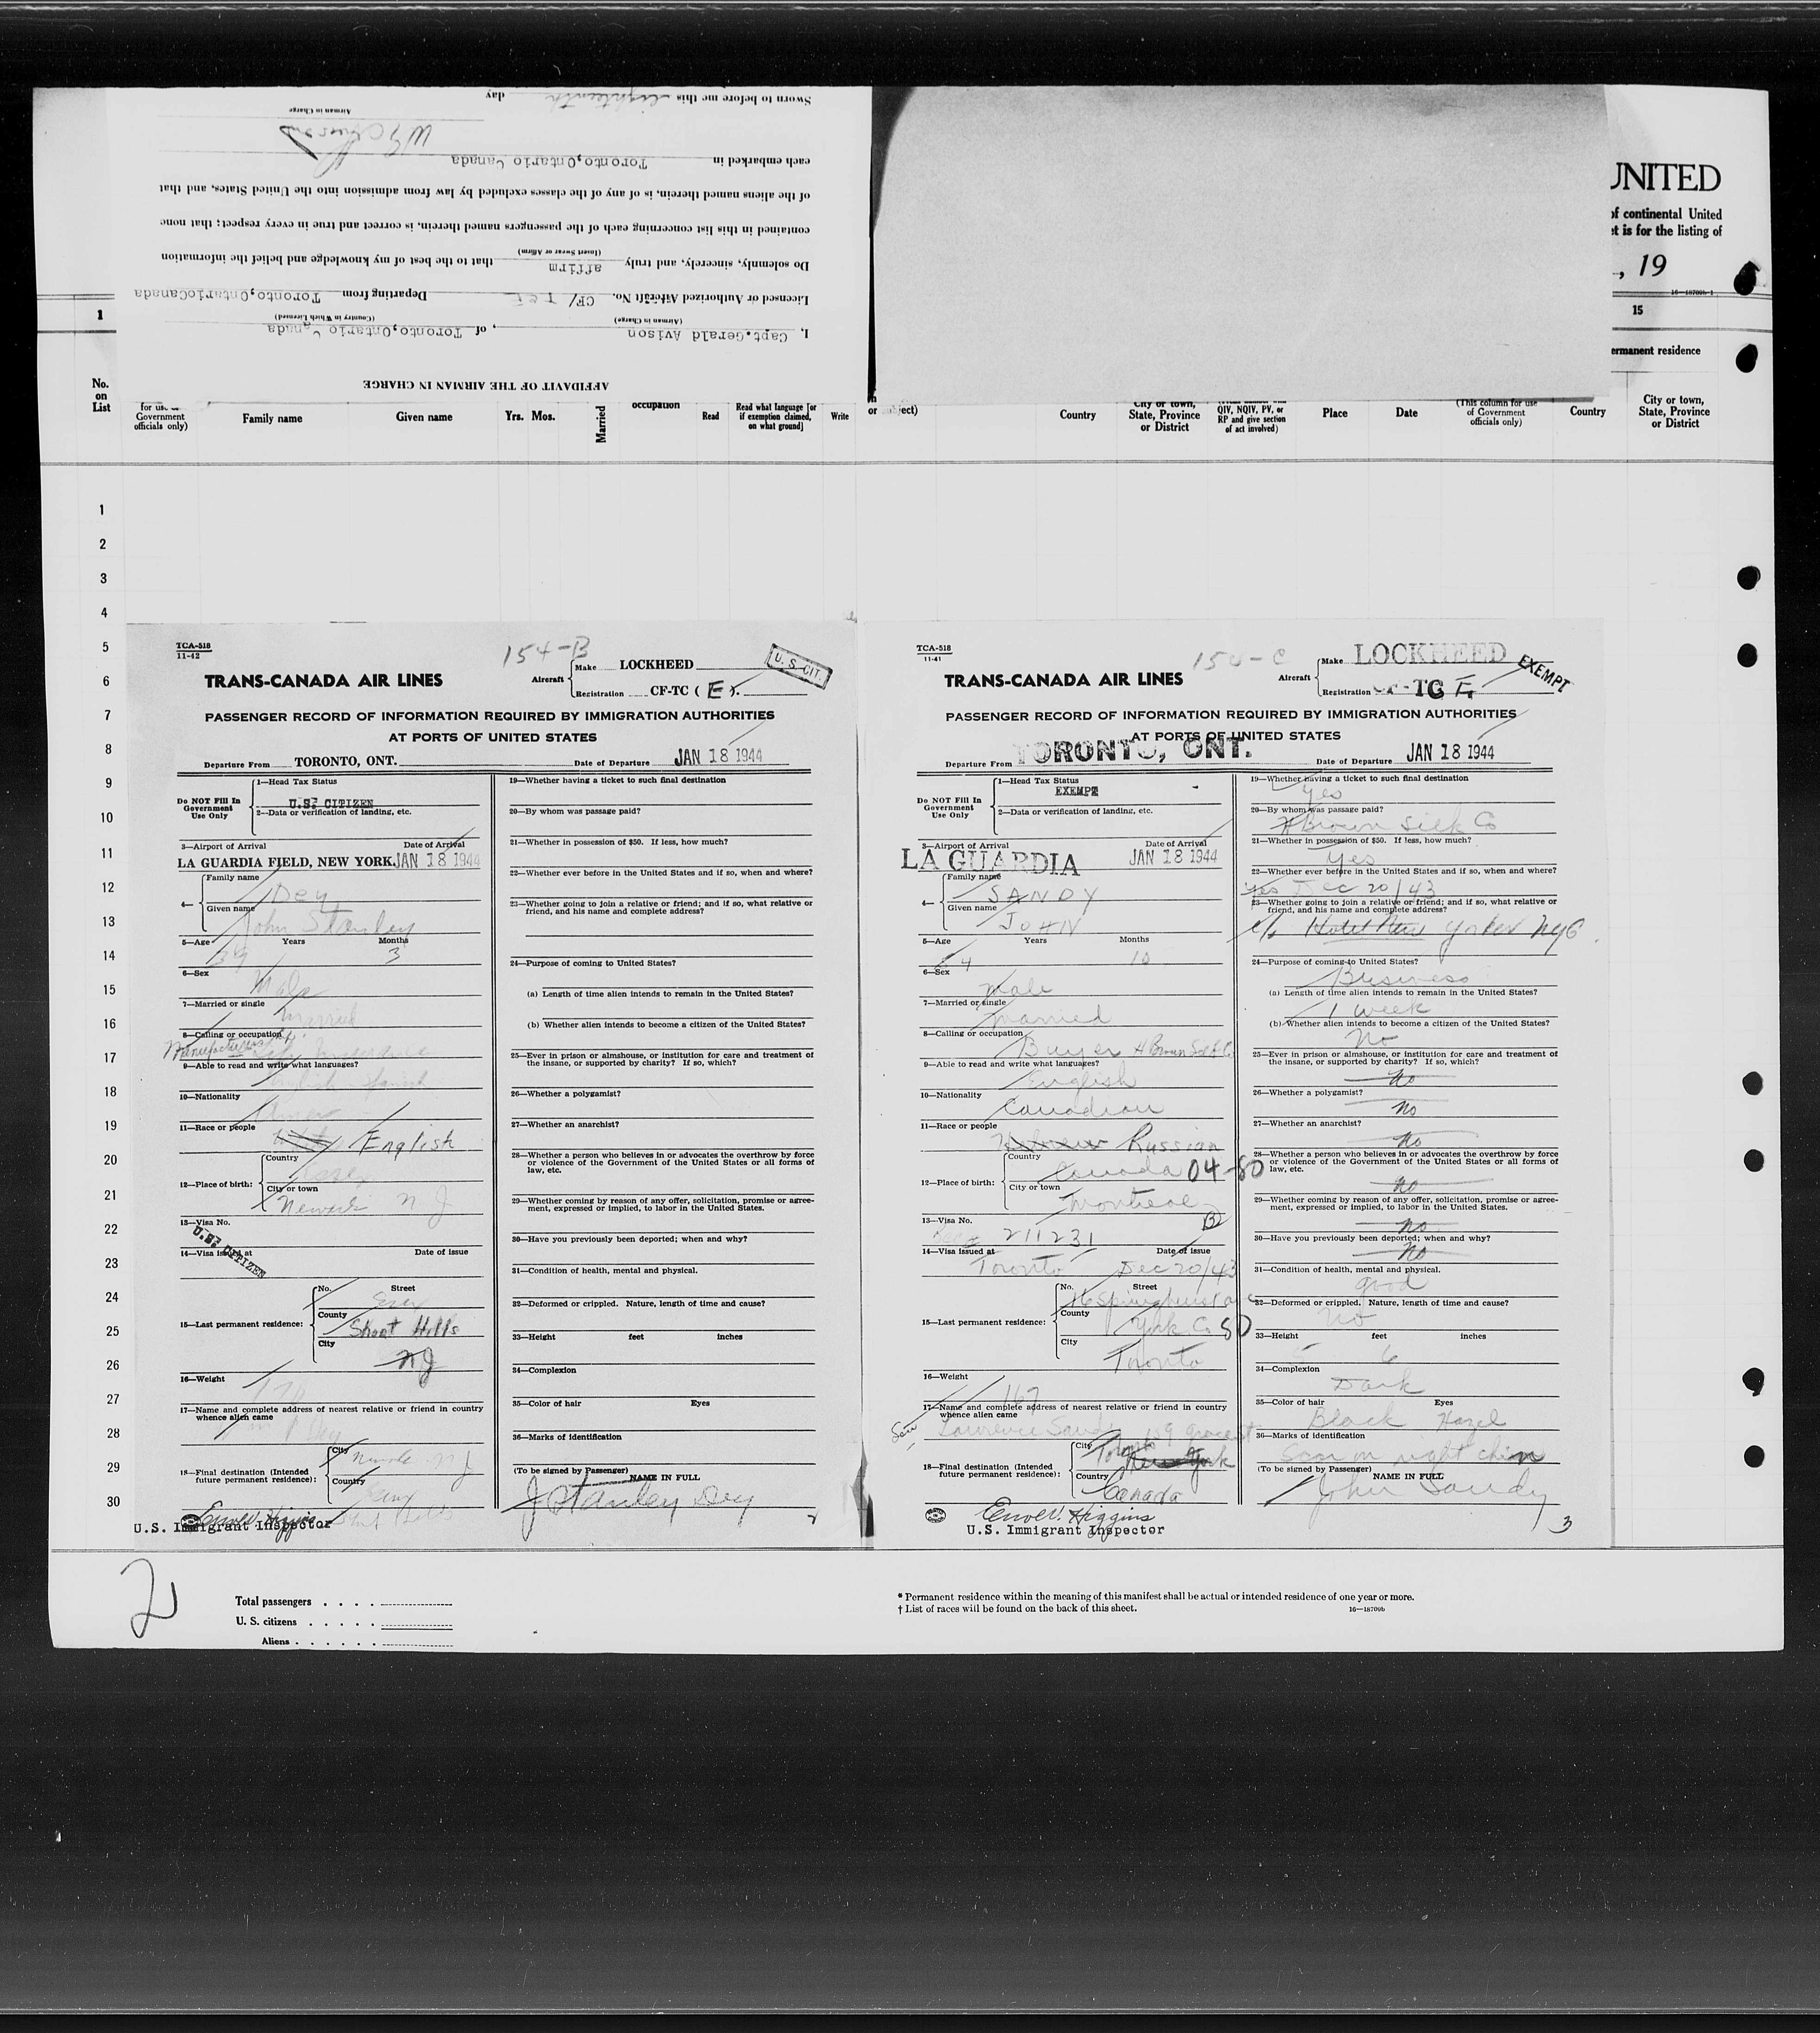 AFFIDAVIT OF THE AIRMAN IN CHARGE
I, Capt. Gerald Avison, of Toronto, Ontario Canada
(Airman in Charge) (Country in Which Licensed)
Licensed or Authorized Aircraft No. CF/ TCE Departing from Toronto, Ontario Canada
Do solemnly, sincerely, and truly affirm that to the best of my knowledge and belief the information
(Insert Swear or Affirm)
contained in this list concerning each of the passengers named therein, is correct and true in every respect; that none
of the aliens named therein, is of any of the classes excluded by law from admission into the United States, and that
each embarked in Toronto, Ontario Canada
Airman in Charge
Sworn to before me this eighteenth day
UNITED
of continental United
et is for the listing of
, 19
16—18709b-1
1
15
ermanent residence
No. on List
for use
Government officials only)
Family name
Given name
Yrs. Mos.
Married
occupation
Read
Read what language [or if exemption claimed, on what ground]
Write
or
ject)
Country
City or town, State, Province or District
QIV, NQIV, PV, or RP and give section of act involved)
Place
Date
(This column for use of Government officials only)
Country
City or town, State, Province or District
1
2
3
4
5
6
7
8
9
10
11
12
13
14
15
16
17
18
19
20
21
22
23
24
25
26
27
28
29
30
TCA-518
11-42
154-B
Aircraft
Make LOCKHEED
Registration CF-TC ( E ).
U. S. CIT.
TRANS-CANADA AIR LINES
PASSENGER RECORD OF INFORMATION REQUIRED BY IMMIGRATION AUTHORITIES
AT PORTS OF UNITED STATES
Departure From TORONTO, ONT. Date of Departure JAN 18 1944
Do NOT Fill In Government Use Only
1—Head Tax Status
U.S. CITIZEN
2—Data or verification of landing, etc.
3—Airport of Arrival Date of Arrival
LA GUARDIA FIELD, NEW YORK. JAN 18 1944
4—
Family name
Dey
Given name
John Stanley
5—Age Years Months
39 3
6—Sex
Male
7—Married or single
Married
8—Calling or occupation
9—Able to read and write what languages?
English Spanish
10—Nationality
11—Race or people
English
12—Place of birth:
Country
City or town
Newark N J
13—Visa No.
U.S. CITIZEN
14—Visa issued at Date of issue
15—Last permanent residence:
No. Street
County
Short Hills
City
NJ
16—Weight
170
17—Name and complete address of nearest relative or friend in country
whence alien came
18—Final destination (Intended future permanent residence):
City
Country
Enver Higgins
U.S. Immigrant Inspector
19—Whether having a ticket to such final destination
20—By whom was passage paid?
21—Whether in possession of $50. If less, how much?
22—Whether ever before in the United States and if so, when and where?
23—Whether going to join a relative or friend; and if so, what relative or
friend, and his name and complete address?
24—Purpose of coming to United States?
(a) Length of time alien intends to remain in the United States?
(b) Whether alien intends to become a citizen of the United States?
25—Ever in prison or almshouse, or institution for care and treatment of
the insane, or supported by charity? If so, which?
26—Whether a polygamist?
27—Whether an anarchist?
28—Whether a person who believes in or advocates the overthrow by force
or violence of the Government of the United States or all forms of
law, etc.
29—Whether coming by reason of any offer, solicitation, promise or agree-
ment, expressed or implied, to labor in the United States.
30—Have you previously been deported; when and why?
31—Condition of health, mental and physical.
32—Deformed or crippled. Nature, length of time and cause?
33—Height feet inches
34—Complexion
35—Color of hair Eyes
36—Marks of identification
(To be signed by Passenger) NAME IN FULL
J Stanley Dey
2
TCA-518
11-41
Aircraft
Make LOCKHEED
Registration CF-TC E
EXEMPT
TRANS-CANADA AIR LINES
PASSENGER RECORD OF INFORMATION REQUIRED BY IMMIGRATION AUTHORITIES
AT PORTS OF UNITED STATES
Departure From TORONTO, ONT. Date of Departure JAN 18 1944
Do NOT Fill In Government Use Only
1—Head Tax Status
EXEMPT
2—Data or verification of landing, etc.
3—Airport of Arrival Date of Arrival
LA GUARDIA JAN 18 1944
4—
Family name
SANDY
Given name
JOHN
5—Age Years Months
10
6—Sex
Male
7—Married or single
Married
8—Calling or occupation
Buyer H Brown Silk Co
9—Able to read and write what languages?
English
10—Nationality
Canadian
11—Race or people
Hebrew Russian
12—Place of birth:
Country
Canada 04-80
City or town
Montreal
13—Visa No.
211231
14—Visa issued at Date of issue
Toronto Dec 20/43
15—Last permanent residence:
No. Street
16 Springhurst ave
County
York Co 80
City
Toronto
16—Weight
167
17—Name and complete address of nearest relative or friend in country
whence alien came
Son Lawrence Sandy
18—Final destination (Intended future permanent residence):
City
Toronto New York
Country
Canada
Enver Higgins
U.S. Immigrant Inspector
19—Whether having a ticket to such final destination
Yes
20—By whom was passage paid?
H Brown Silk Co
21—Whether in possession of $50. If less, how much?
Yes
22—Whether ever before in the United States and if so, when and where?
Yes Dec 20/43
23—Whether going to join a relative or friend; and if so, what relative or
friend, and his name and complete address?
c/o Hotel New Yorker NYC
24—Purpose of coming to United States?
Business
(a) Length of time alien intends to remain in the United States?
1 week
(b) Whether alien intends to become a citizen of the United States?
No
25—Ever in prison or almshouse, or institution for care and treatment of
the insane, or supported by charity? If so, which?
No
26—Whether a polygamist?
No
27—Whether an anarchist?
No
28—Whether a person who believes in or advocates the overthrow by force
or violence of the Government of the United States or all forms of
law, etc.
No
29—Whether coming by reason of any offer, solicitation, promise or agree-
ment, expressed or implied, to labor in the United States.
No
30—Have you previously been deported; when and why?
No
31—Condition of health, mental and physical.
good
32—Deformed or crippled. Nature, length of time and cause?
No
33—Height feet inches
5 6
34—Complexion
Dark
35—Color of hair Eyes
Black Hazel
36—Marks of identification
Scar on right chin
(To be signed by Passenger) NAME IN FULL
John Sandy
3
2
Total passengers
U. S. citizens
Aliens
* Permanent residence within the meaning of this manifest shall be actual or intended residence of one year or more.
† List of races will be found on the back of this sheet. 16—18709b